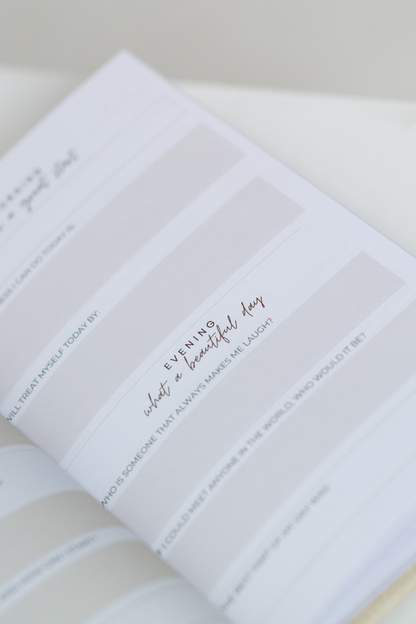 a great day
I CAN DO TODAY IS
WILL TREAT MYSELF TODAY BY:
EVENING
what a beautiful day
WHO IS SOMEONE THAT ALWAYS MAKES ME LAUGH?
IF I COULD MEET ANYONE IN THE WORLD, WHO WOULD IT BE?
THE BEST PART OF MY DAY WAS: